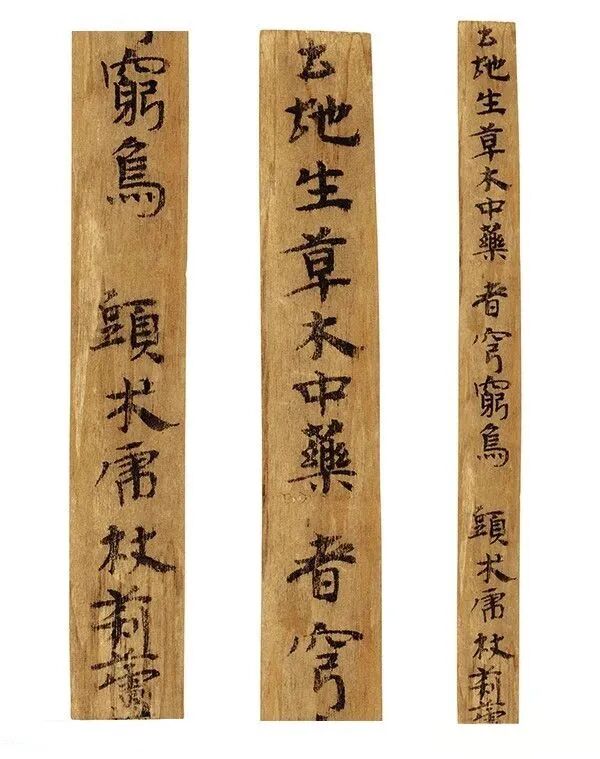 土地生草木中藥 者穹窮烏 頭朮庸杖
土地生草木中藥 者穹
窮烏 頭朮庸杖